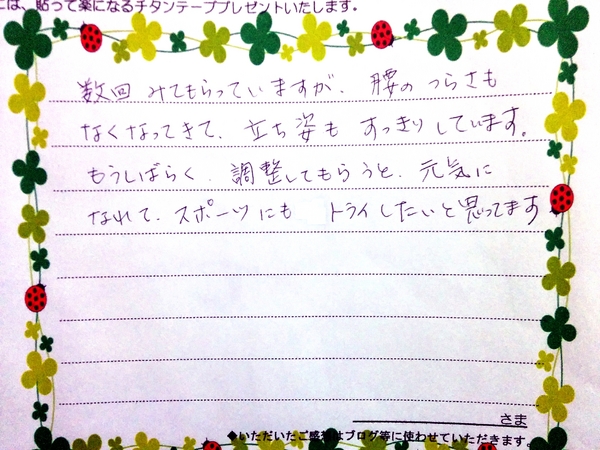 には、貼って楽になるチタンテーププレゼントいたします。
数回 みてもらっていますが、腰の つらさも
なくなってきて、立ち姿も すっきりしています。
もうしばらく、調整してもらうと、元気に
なれて、スポーツにも トライしたいと思ってます
さま
◆いただいたご感想はブログ等に使わせていただきます。